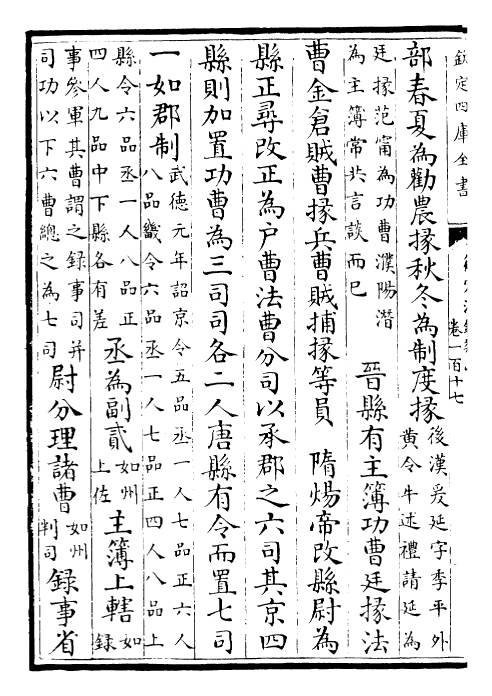 欽定四庫全書
卷一百十七
部春夏為勸農掾秋冬為制度掾
後漢爰延字季平外
黃令牛述禮請延為
廷掾范甯為功曹濮陽潛
為主簿常共言談而已
晉縣有主簿功曹廷掾法
曹金倉賊曹掾兵曹賊捕掾等員　隋煬帝改縣尉為
縣正尋改正為户曹法曹分司以承郡之六司其京四
縣則加置功曹為三司司各二人唐縣有令而置七司
一如郡制
武徳元年詔京令五品丞一人七品正六人
八品畿令六品丞一人七品正四人八品上
縣令六品丞一人八品正
四人九品中下縣各有差
丞為副貳
如州
上佐
主簿上轄
如
録
事參軍其曹謂之録事司并
司功以下六曹總之為七司
尉分理諸曹
如州
判司
録事省